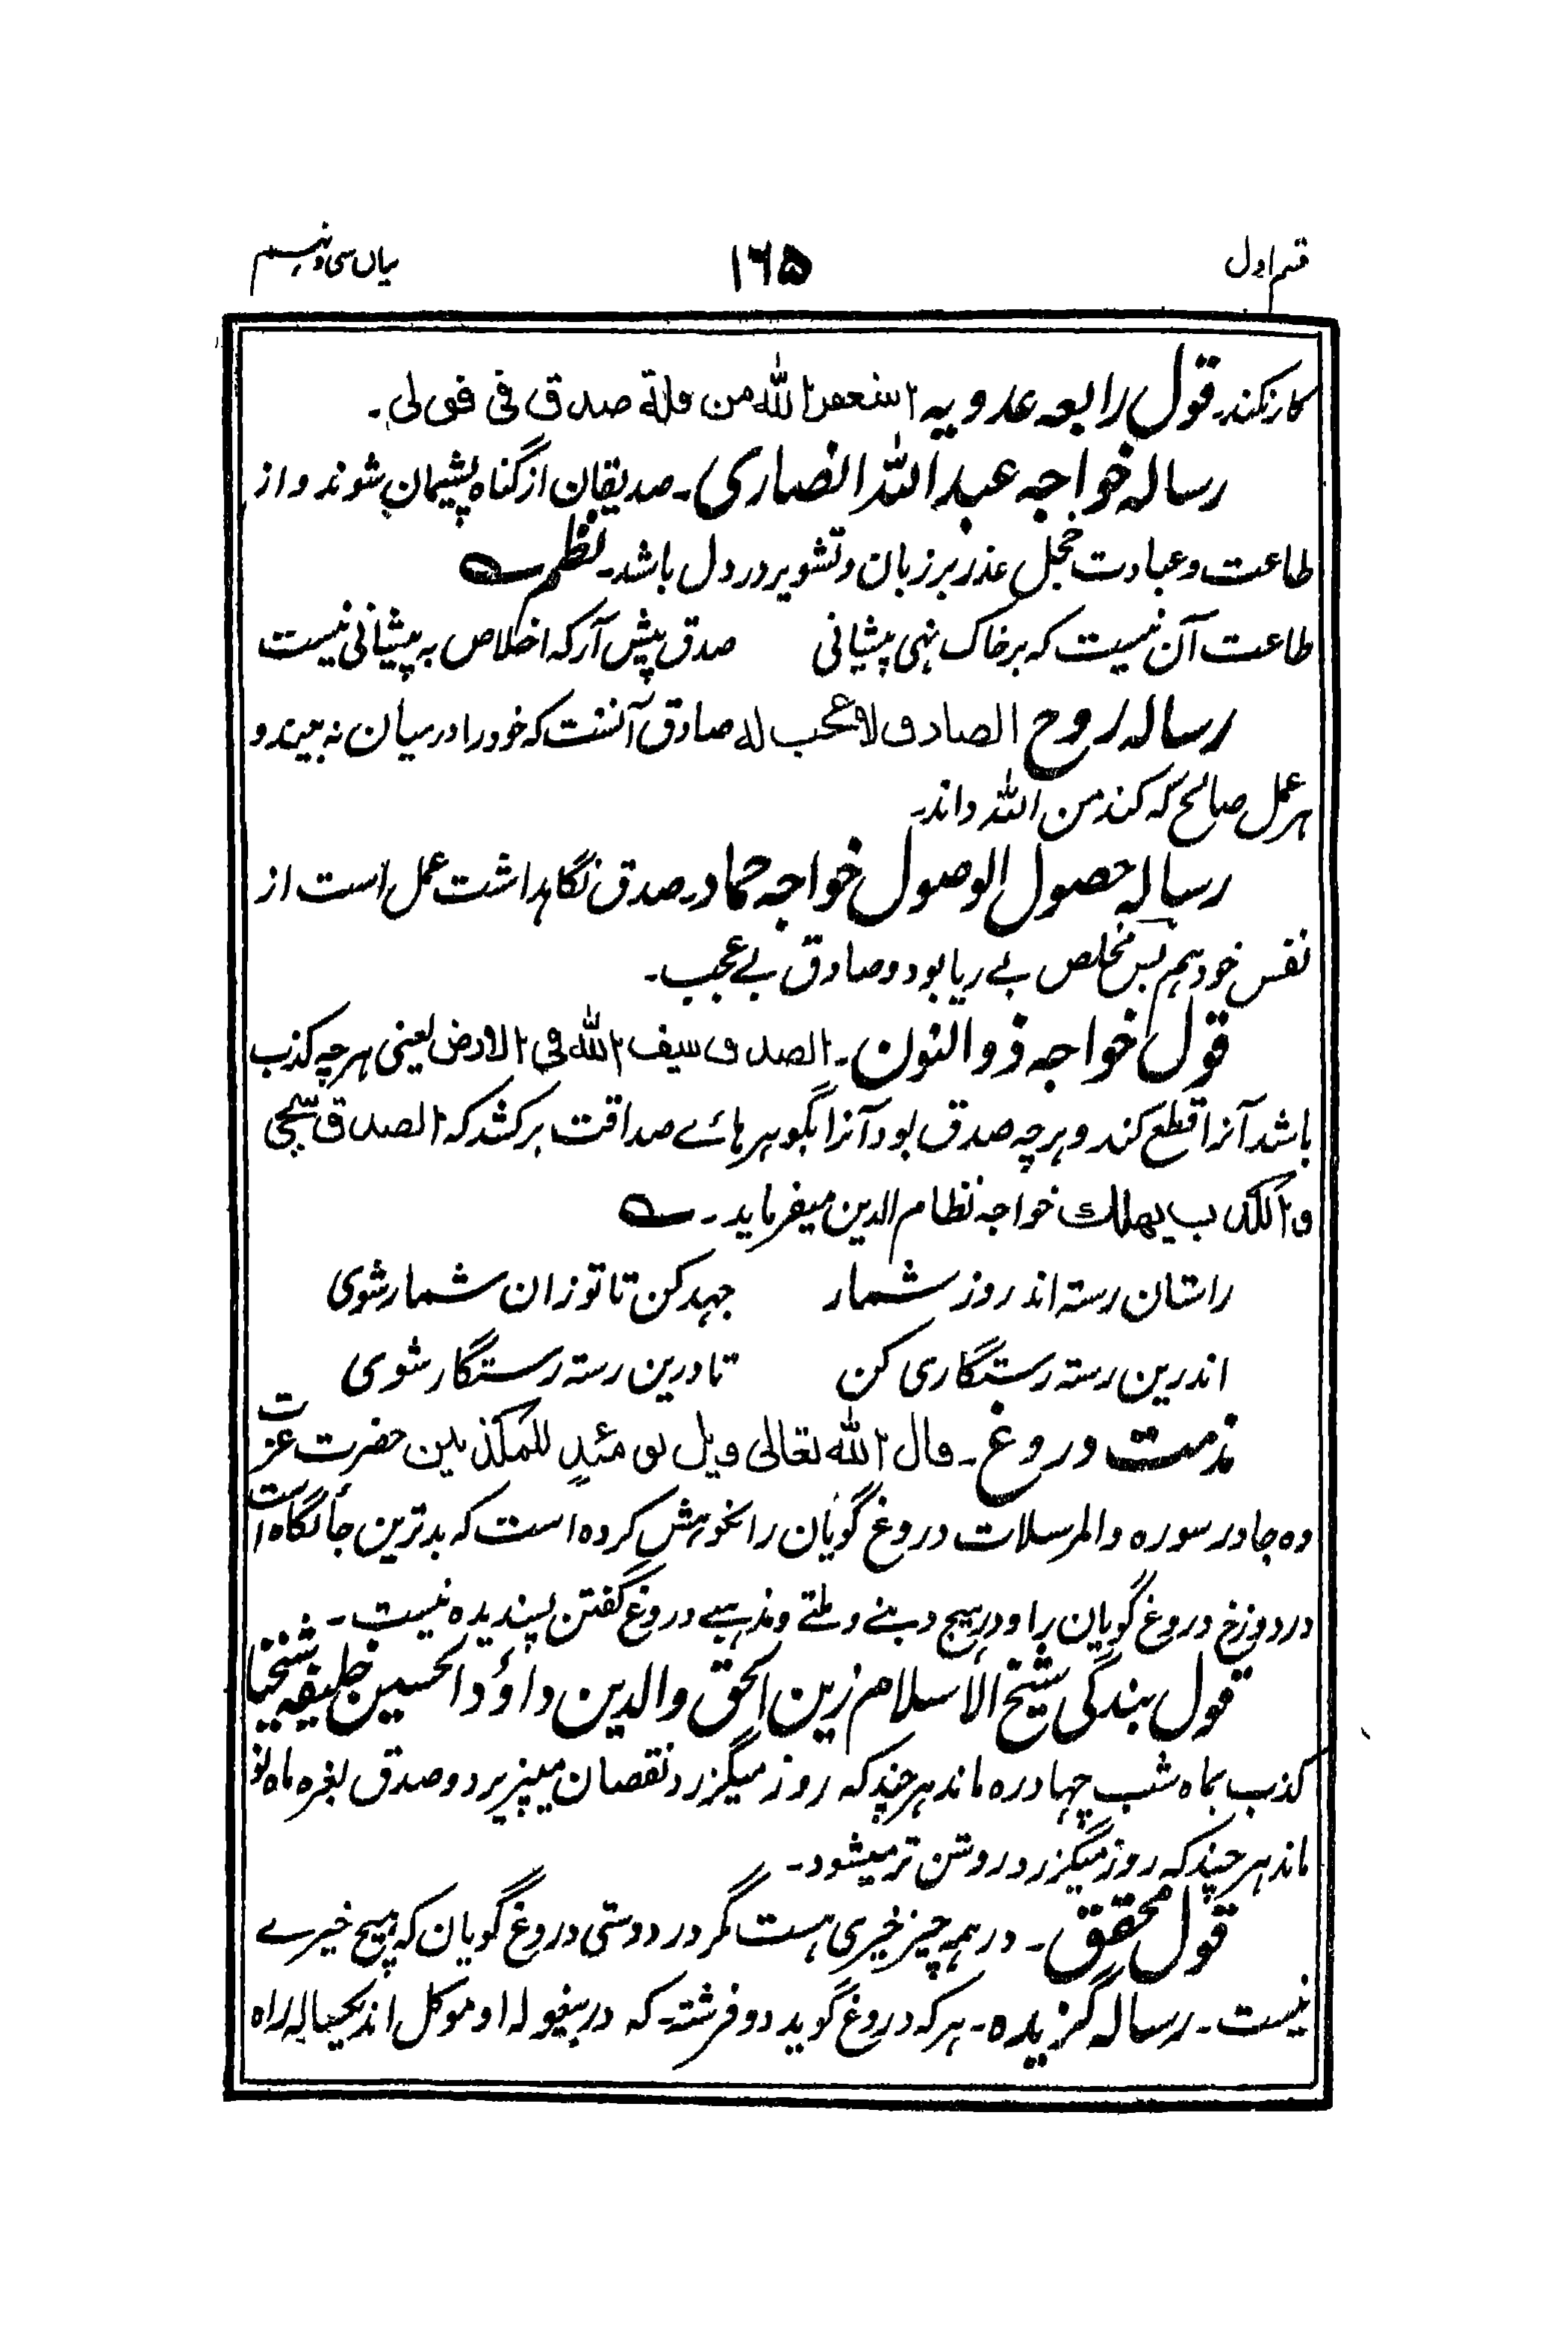 قسم اول
۱۶۵
بیاں سی و نہم
کار نکند۔ قول رابعہ عدویہ استغفر الله من قلة صدق فی قولی۔
رسالہ خواجہ عبد اللہ انصاری۔ صدیقان از گناہ پشیمان شوند و از
طاعت و عبادت خجل عذر بر زبان و تشویر در دل باشد۔ نظم
طاعت آن نیست کہ بر خاک نہی پیشانی صدق پیش آر کہ اخلاص بہ پیشانی نیست
رسالہ روح الصادق لا عجب له صادق آنست کہ خود را در میان نہ بیند و
ہر عمل صالح کہ کند من اللہ داند۔
رسالہ حصول الوصول خواجہ حماد۔ صدق نگاہداشت عمل است از
نفس خود ہم پس مخلص بے ریا بود و صادق بے عجب۔
قول خواجہ ذو النون۔ الصدق سیف الله فی الارض یعنی ہر چہ کذب
باشد آنرا قطع کند و ہر چہ صدق بود آنرا بگوہر ہائے صداقت برکشد کہ الصدق ینجی
و الکذب یهلك خواجہ نظام الدین میفرماید۔
راستان رستہ اند روز شمار جہد کن تا تو زان شمار شوی
اندرین رستہ رستگاری کن تا درین رستہ رستگار شوی
مذمت دروغ۔ قال الله تعالی ویل یومئذٍ للمکذبین حضرت عزت
دہ جا در سورہ والمرسلات دروغ گویان را نکوہش کردہ است کہ بدترین جائگاہ است
در دوزخ دروغ گویان را و در ہیچ دینے و ملتے و مذہبے دروغ گفتن پسندیدہ نیست۔
قول بندگی شیخ الاسلام زین الحق والدین داؤد الحسین خلیفہ شیخنا
کذب بماہ شب چہاردہ ماند ہر چند کہ روز میگزرد نقصان میپزیرد و صدق بغرہ ماہ نو
ماند ہر چند کہ روز میگزرد روشن تر میشود۔
قول محقق۔ در ہمہ چیز خیری ہست مگر در دوستی دروغ گویان کہ ہیچ خیرے
نیست۔ رسالہ گزیدہ۔ ہر کہ دروغ گوید دو فرشتہ۔ کہ در او موکل اند یکسالہ راہ